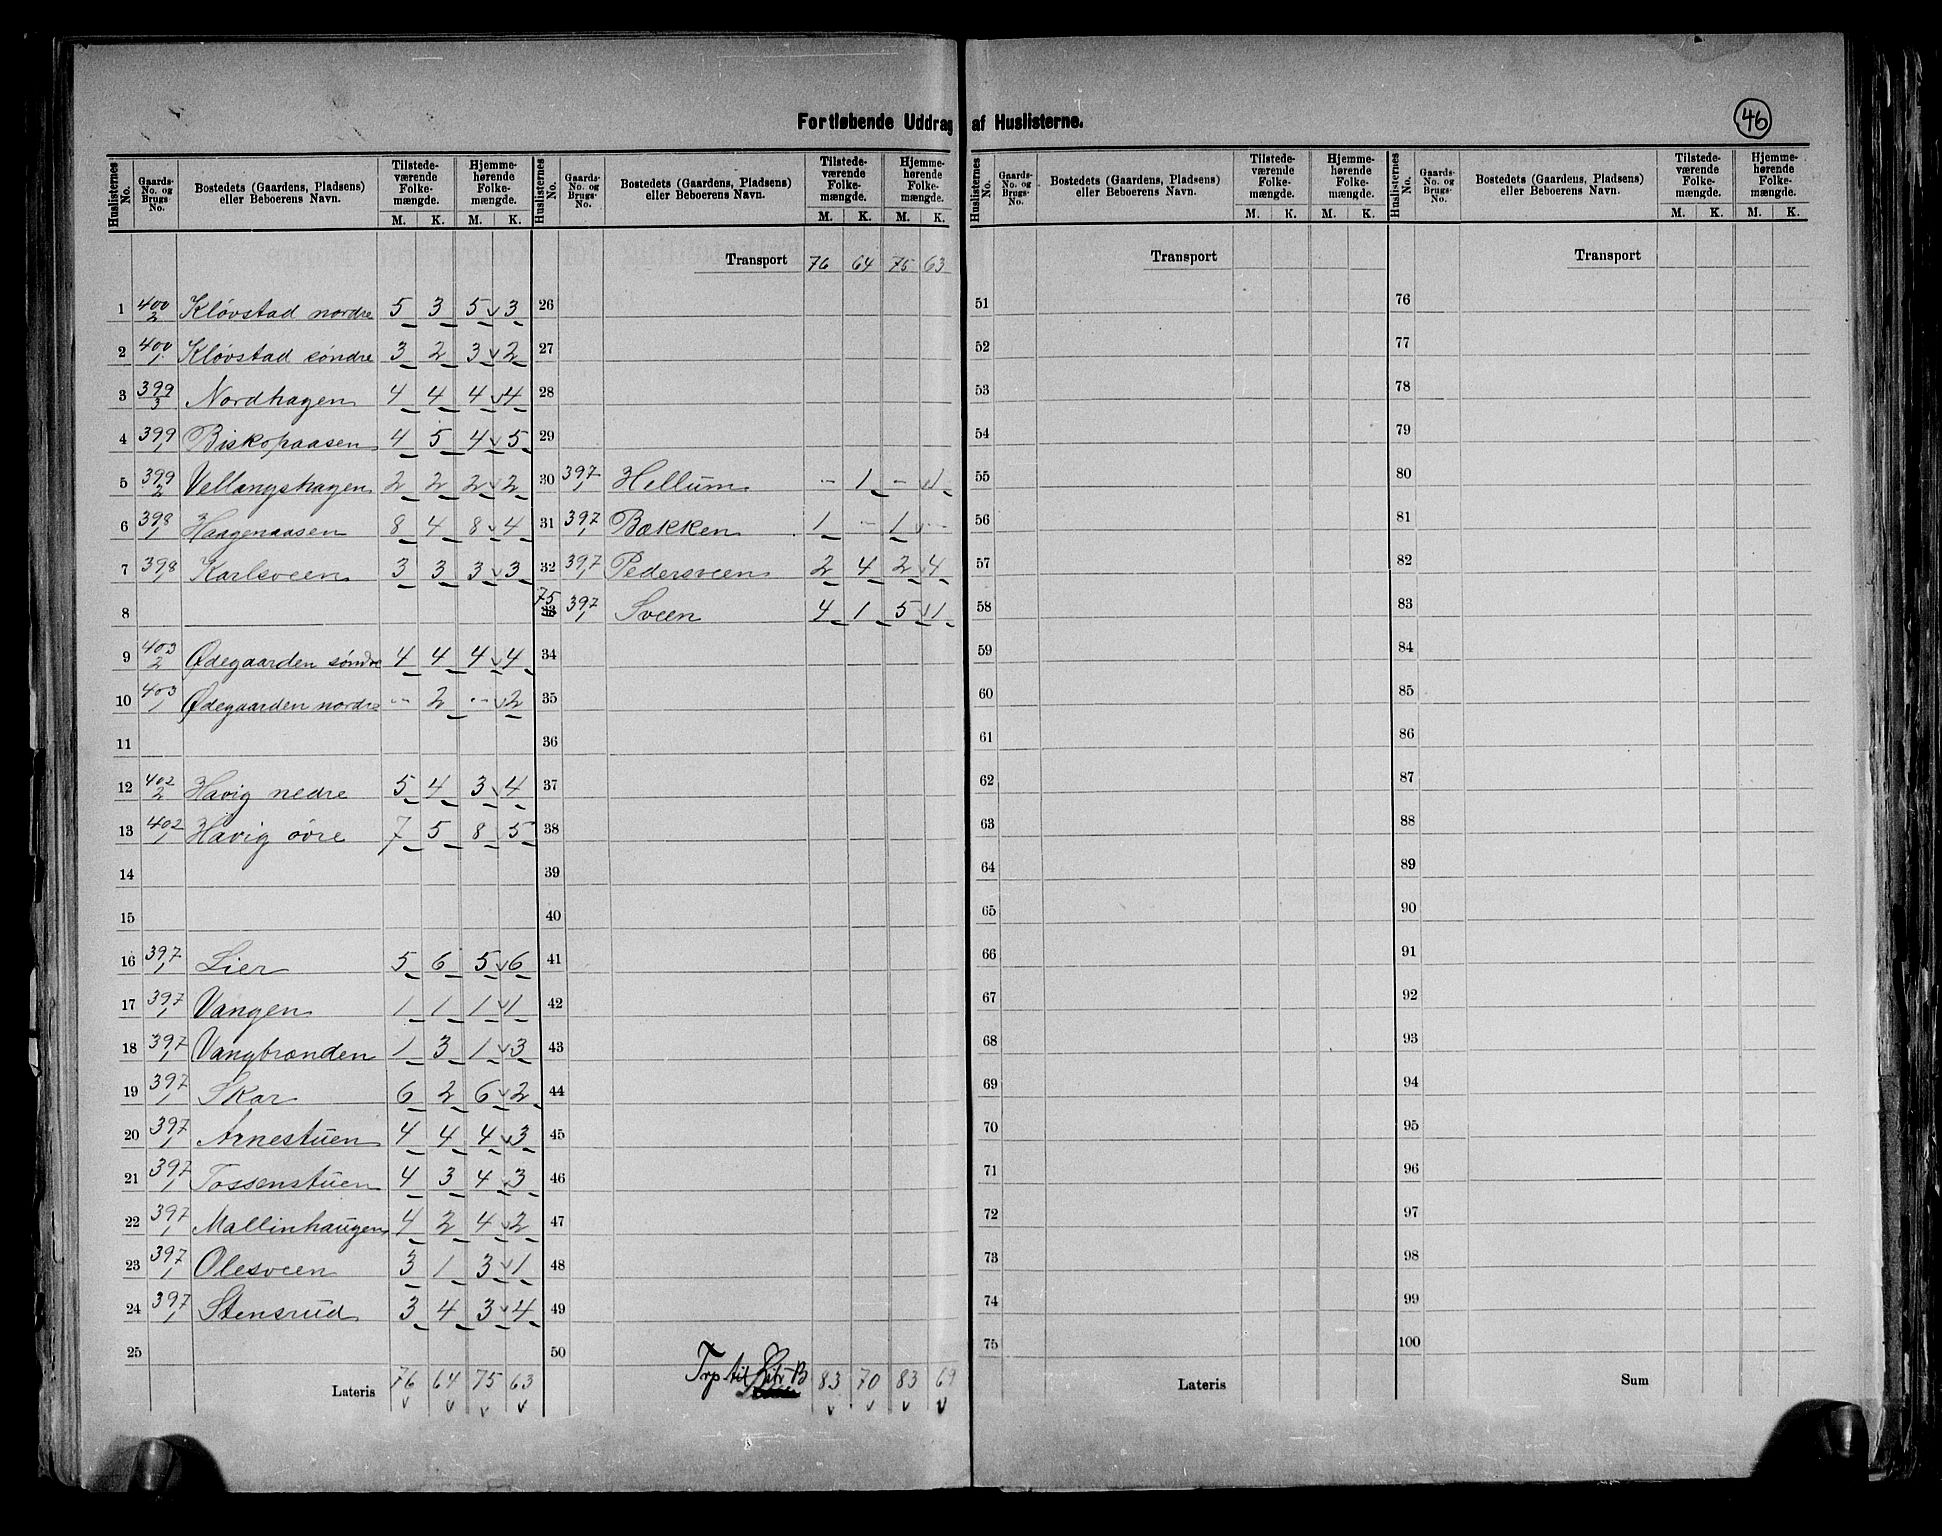 Fortløbende Uddrag af Huslisterne.
46
Huslisternes No. | Gaards-No. og Brugs-No. | Bostedets (Gaardens, Pladsens) eller Beboerens Navn. | Tilstedeværende Folkemængde. M. K. | Hjemmehørende Folkemængde. M. K.
1 400/2 Kløvstad nordre 5 3 5 v 3
2 400/1 Kløvstad søndre 3 2 3 v 2
3 399/3 Nordhagen 4 4 4 v 4
4 399/1 Biskopaasen 4 5 4 v 5
5 399/2 Vellangshagen 2 2 2 v 2
6 398/1 Haagenaasen 8 4 8 v 4
7 398/1 Karlsveen 3 3 3 v 3
8
9 403/2 Ødegaarden søndre 4 4 4 v 4
10 403/1 Ødegaarden nordre -- 2 -- v 2
11
12 402/2 Havig nedre 5 4 3 v 4
13 402/1 Havig øvre 7 5 8 v 5
14
15
16 397/1 Lier 5 6 5 v 6
17 397/1 Vangen 1 1 1 v 1
18 397/1 Vangbrænden 1 3 1 v 3
19 397/1 Skar 6 2 6 v 2
20 397/1 Arnestuen 4 4 4 v 3
21 397/1 Tossenstuen 4 3 4 v 3
22 397/1 Mallinhaugen 4 2 4 v 2
23 397/1 Olesveen 3 1 3 v 1
24 397/1 Stensrud 3 4 3 v 4
25
Lateris 76 64 75 63
v v v v
Huslisternes No. | Gaards-No. og Brugs-No. | Bostedets (Gaardens, Pladsens) eller Beboerens Navn. | Tilstedeværende Folkemængde. M. K. | Hjemmehørende Folkemængde. M. K.
Transport 76 64 75 63
26
27
28
29
30 397/1 Hellum -- 1 -- v 1
31 397/1 Bækken 1 -- 1 v --
32 397/1 Pedersveen 2 4 2 v 4
75
33 397/1 Sveen 4 1 5 v 1
34
35
36
37
38
39
40
41
42
43
44
45
46
47
48
49
50
Trp til Litr B 83 70 83 69
v v v v
Huslisternes No. | Gaards-No. og Brugs-No. | Bostedets (Gaardens, Pladsens) eller Beboerens Navn. | Tilstedeværende Folkemængde. M. K. | Hjemmehørende Folkemængde. M. K.
Transport
51
52
53
54
55
56
57
58
59
60
61
62
63
64
65
66
67
68
69
70
71
72
73
74
75
Lateris
Huslisternes No. | Gaards-No. og Brugs-No. | Bostedets (Gaardens, Pladsens) eller Beboerens Navn. | Tilstedeværende Folkemængde. M. K. | Hjemmehørende Folkemængde. M. K.
Transport
76
77
78
79
80
81
82
83
84
85
86
87
88
89
90
91
92
93
94
95
96
97
98
99
100
Sum